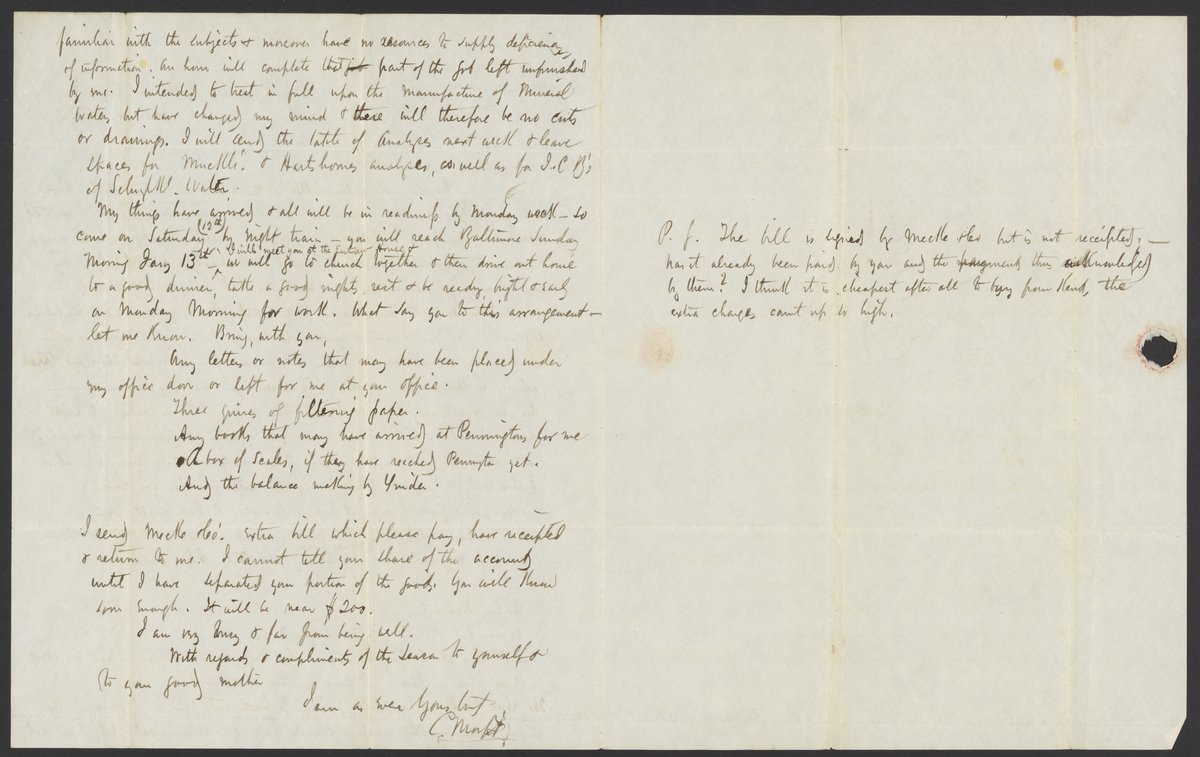 familiar with the subjects & moreover have no resources to supply deficiency
of information. An hour will complete that part of the job left unfinished
by me. I intended to treat in full upon the manufacture of Mineral
Waters but have changed my mind & there will therefore be no cuts
or drawings. I will send the table of Analyses next week & leave
spaces for & Hartshornes analyses, as well as for J.C B's
of Schuylkl. Water.
My things have arrived & all will be in readiness by Monday week – so
come on Saturday (12th) by night train – you will reach Baltimore Sunday
Morning Jany 13th – I will meet you at the Eutaw House &
we will go to church together & then drive out home
to a good dinner, take a good nights rest & be ready, bright & early
on Monday Morning for work. What say you to this arrangement –
let me know. Bring, with you,
Any letters or notes that may have been placed under
my office door or left for me at your office.
Three quires of filtering paper.
Any books that may have arrived at Penningtons for me
A box of Scales, if they have reached yet.
And the balance making by
I send extra bill which please pay, have receipted
& return to me. I cannot tell your share of the account
until I have separated your portion of the goods. You will know
soon enough. It will be near $200.
I am very busy & far from being well.
With regards & compliments of the Season to yourself &
to your good mother
I am as ever Yours truly
C. Morfit
P. S. The bill is signed by but is not receipted; –
has it already been paid by you and the payment thus acknowledged
by them? I think it is cheapest after all to buy from Kent, the
extra charges count up so high.